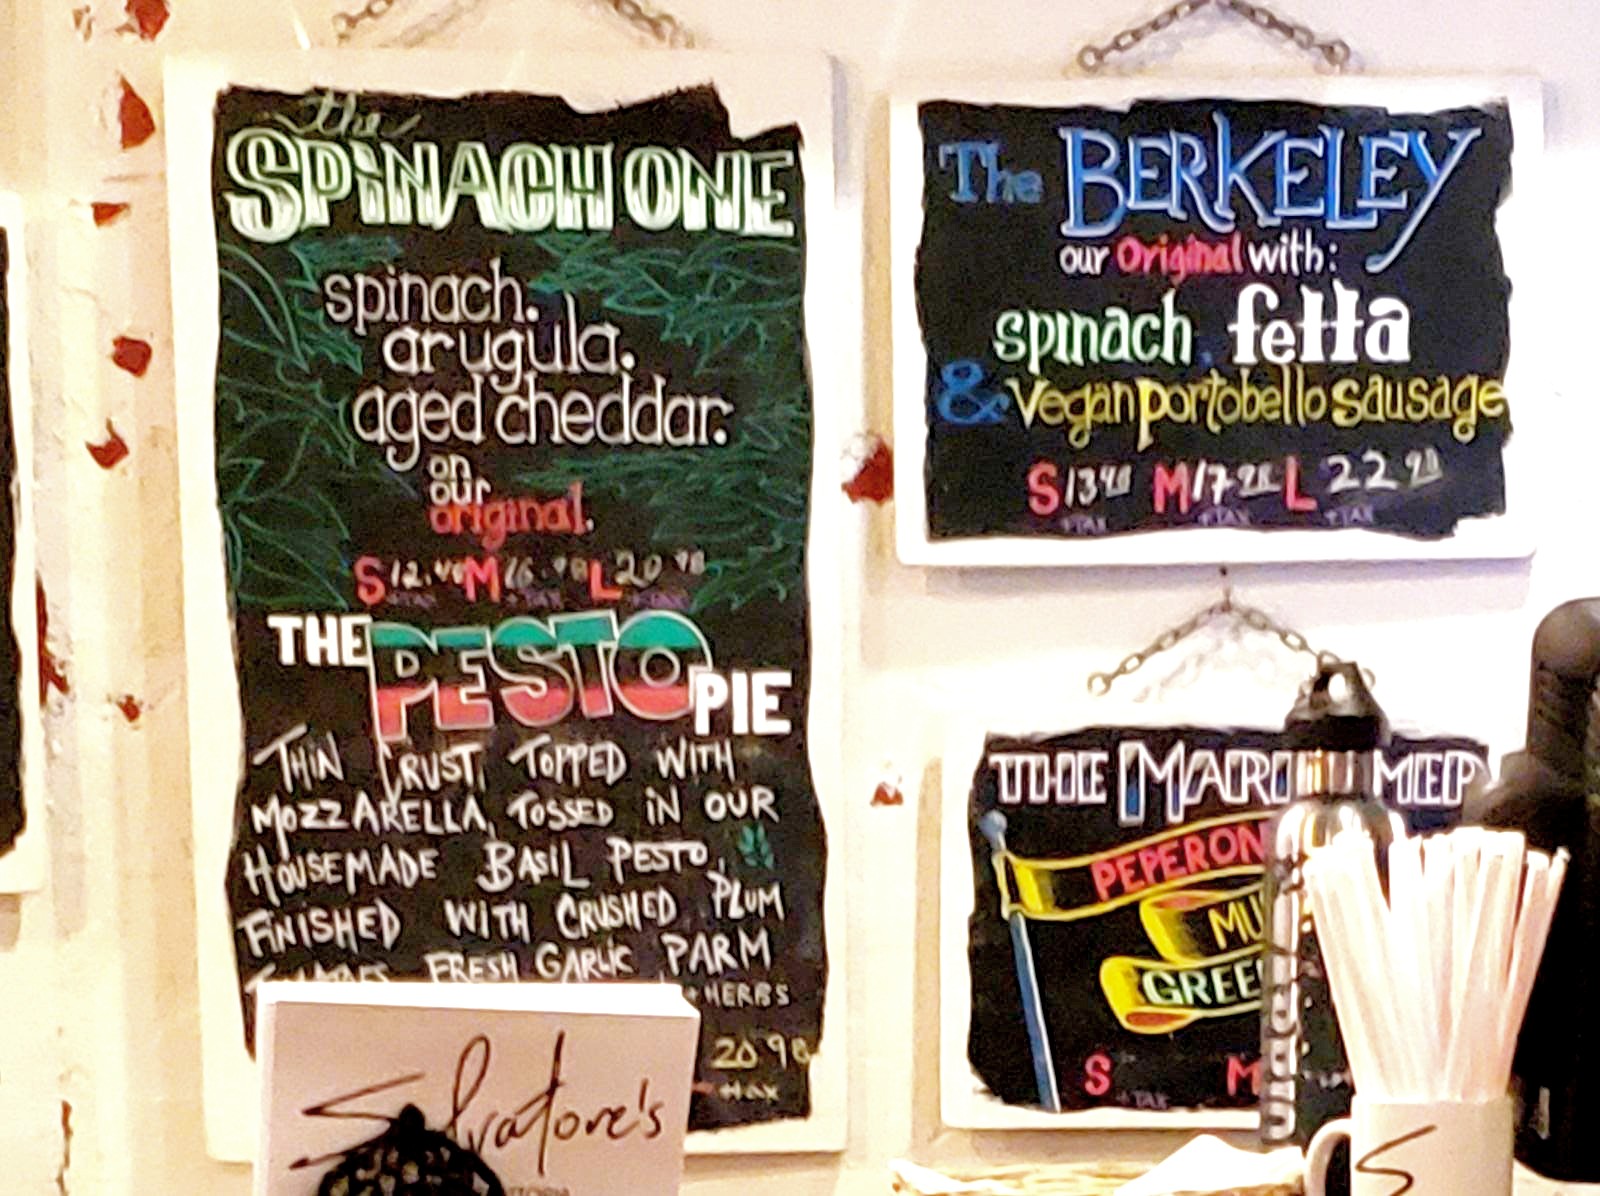 the
SPINACH ONE
spinach.
arugula.
aged cheddar.
on
our
original.
S 12.48 M 16.98 L 20 98
+TAX +TAX +TAX
THE PESTO PIE
THIN CRUST, TOPPED WITH
MOZZARELLA, TOSSED IN OUR
HOUSEMADE BASIL PESTO,
FINISHED WITH CRUSHED PLUM
FRESH GARLIC PARM
+ HERBS
20 98
+tax
Salvatore's
The BERKELEY
our Original with:
spinach, fetta
& Vegan portobello sausage
S 13 48 M 17 98 L 22 98
+TAX +TAX +TAX
THE MARI MER
PEPERON
MU
GREE
S M
+TAX
S